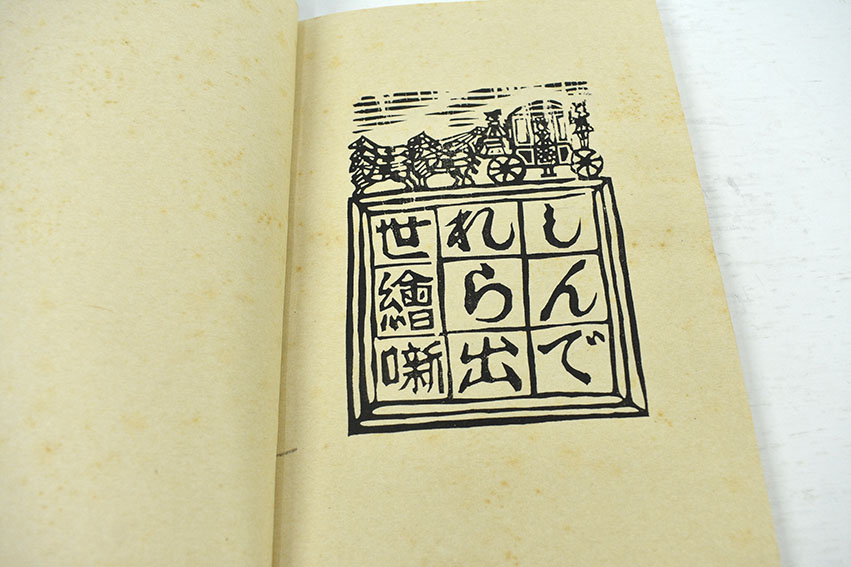 しんで
れら出
世繪噺